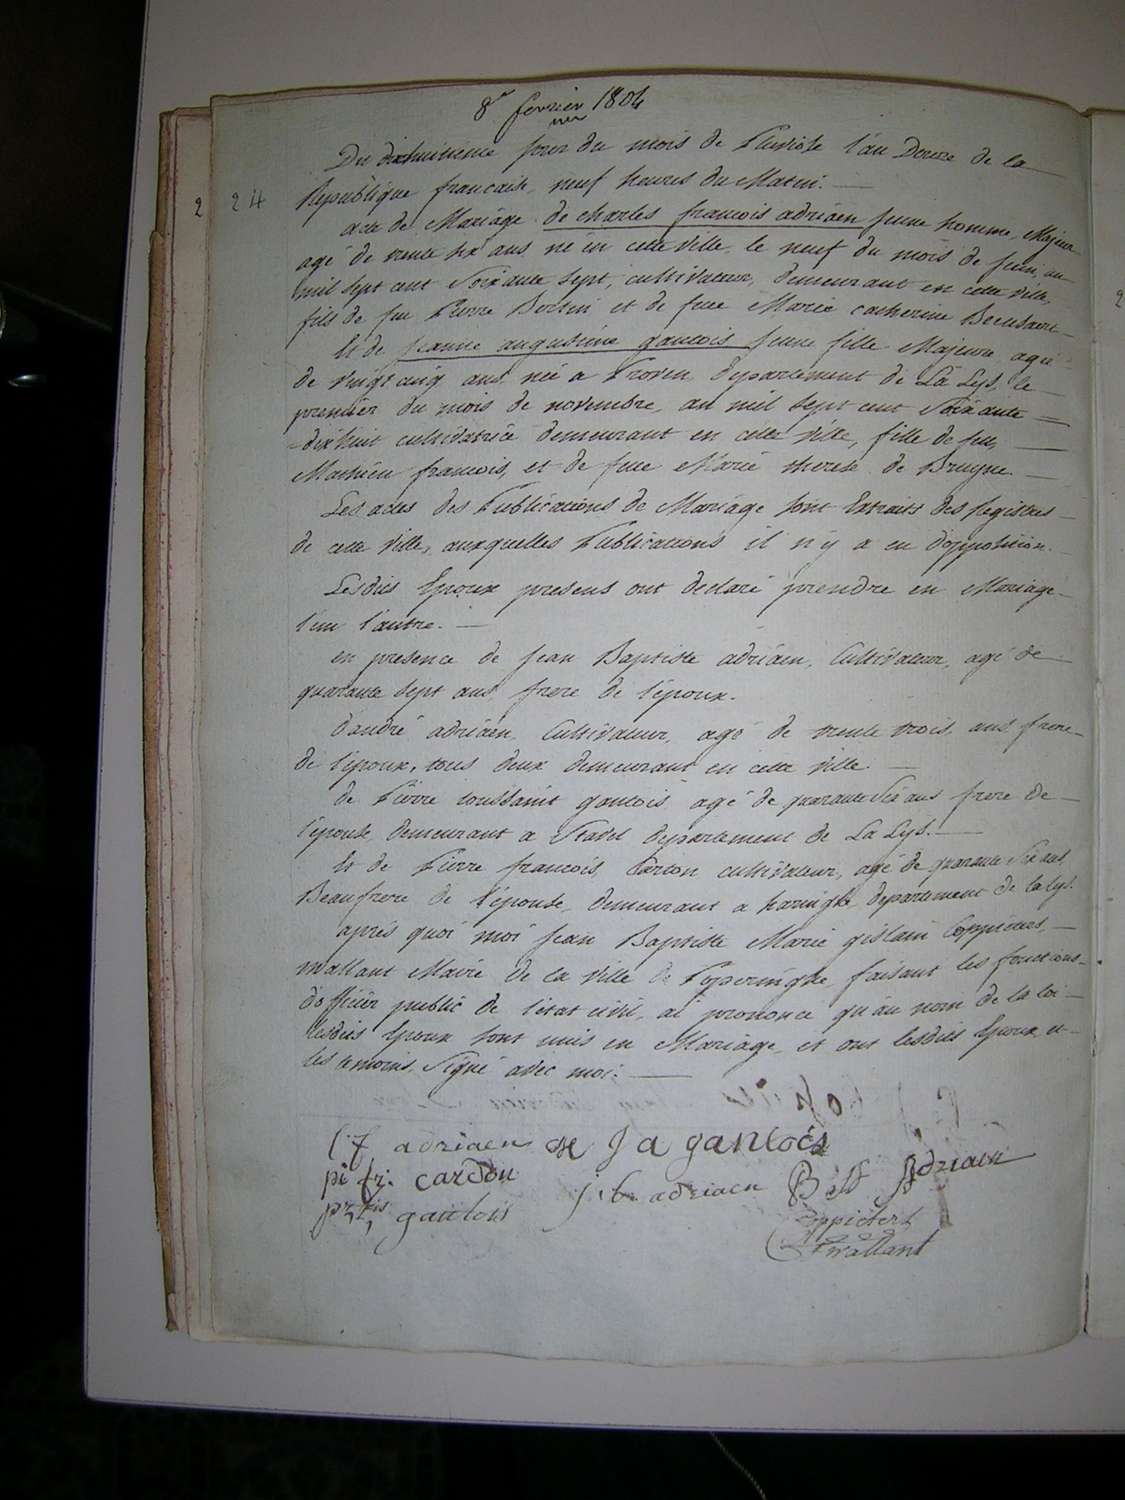 8r fevrier 1804
2
24
Du dixhuitieme jour du mois de Pluviose l'an Douze de la
Republique francaise, neuf heures du Matin.
acte de Mariage de charles francois adriaen jeune homme, Majeur
agé de trente six ans, né en cette ville, le neuf du mois de juin, an
mil sept cent soixante sept, cultivateur, demeurant en cette ville,
fils de feu Pierre Bertin et de feue Marie catherine
Et de jeanne augustine gaulois jeune fille Majeure agée
de vingt cinq ans, née a Proven, departement de La Lys, le
premier du mois de novembre, an mil sept cent soixante
=dixhuit cultivatrice demeurant en cette ville, fille de feu,
Mathieu francois, et de feue Marie therese de Bruyne.
Les actes des Publications de Mariage sont Extraits des Registres
de cette ville, auxquelles Publications il n'y a eu d'opposition.
Lesdits Epoux presens ont declaré prendre en Mariage
l'un l'autre.
en presence de jean Baptiste adriaen, Cultivateur, agé de
quarante sept ans, frere de l'époux.
d'andré adriaen, Cultivateur, agé de trente trois ans frere
de l'époux, tous deux demeurant en cette ville.
de Pierre toussaint gaulois, agé de quarante six ans frere de
l'épouse, demeurant a Stavel departement de La Lys.
Et de Pierre francois Carton cultivateur, agé de quarante six ans,
Beaufrere de l'épouse, demeurant a haringhe, departement de la lys.
après quoi moi jean Baptiste Marie gislain Coppieters,
mallant Maire de la Ville de Poperinghe, faisant les fonctions
d'officier public de l'état civil, ai prononcé qu'au nom de la loi
lesdits Epoux sont unis en Mariage, et ont lesdits Epoux et
les temoins signé avec moi.
c f adriaen j a gaulois
pi fr. cardon j. b. adriaen adriaen
gaulois Coppieters
mallant